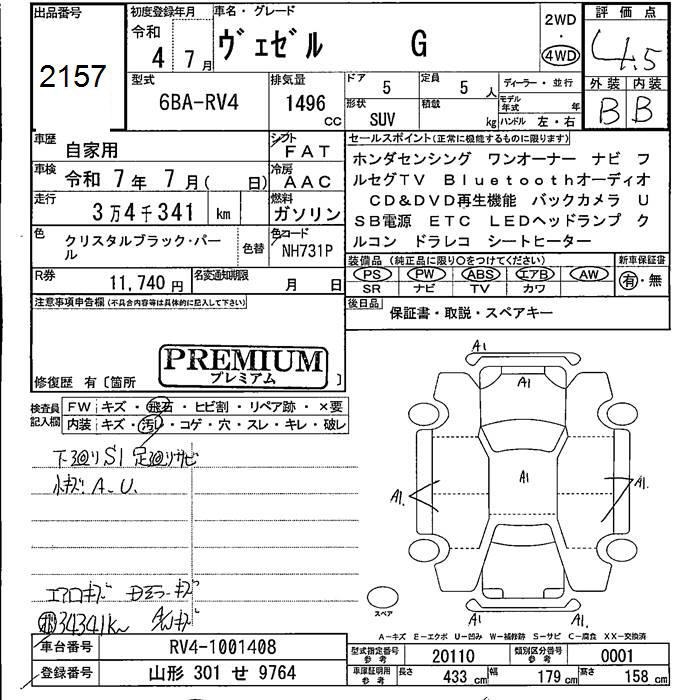 出品番号
2157
初度登録年月
令和
4 7月
車名・グレード
ヴェゼル G
2WD
・
4WD
評価点
4.5
外装 内装
B B
型式
6BA-RV4
排気量
1496 cc
ドア 5
定員 5 人
形状 SUV
積載 kg
ディーラー・並行
モデル年式 年
ハンドル 左・右
車歴 自家用
シフト FAT
車検 令和 7年 7月( 日)
冷房 AAC
走行 3万4千341 km
燃料 ガソリン
色 クリスタルブラック・パール
色替
色コード NH731P
R券 11,740円
名変通知期限 月 日
セールスポイント(正常に機能するものに限ります)
ホンダセンシング ワンオーナー ナビ フ
ルセグTV Bluetoothオーディオ
CD&DVD再生機能 バックカメラ U
SB電源 ETC LEDヘッドランプ ク
ルコン ドラレコ シートヒーター
装備品(純正品に限り○をつけてください)
PS PW ABS エアB AW
SR ナビ TV カワ
新車保証書
有・無
後日品 保証書・取説・スペアキー
注意事項申告欄(不具合内容等は具体的に記入して下さい)
PREMIUM
プレミアム
修復歴 有〔箇所 〕
検査員
記入欄
FW キズ・飛石・ヒビ割・リペア跡・×要
内装 キズ・汚れ・コゲ・穴・スレ・キレ・破レ
下廻りS1 足廻りサビ
小キズ A-U.
エアロキズ
34341K
A1
A1
A1
A1.
A1.
A1
スペア
A-キズ E-エクボ U-凹み W-補修跡 S-サビ C-腐食 XX-交換済
車台番号 RV4-1001408
登録番号 山形 301 せ 9764
型式指定番号 参考 20110
類別区分番号 参考 0001
車庫証明用 参考 長さ 433 cm 幅 179 cm 高さ 158 cm